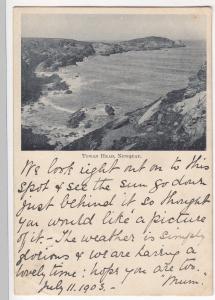 TOWAN HEAD, NEWQUAY.
We look right out on to this
spot & see the sun go down
just behind it so thought
you would like a picture
of it - The weather is simply
glorious & we are having a
lovely time: hope you are too.
July 11. 1903. - Mum.